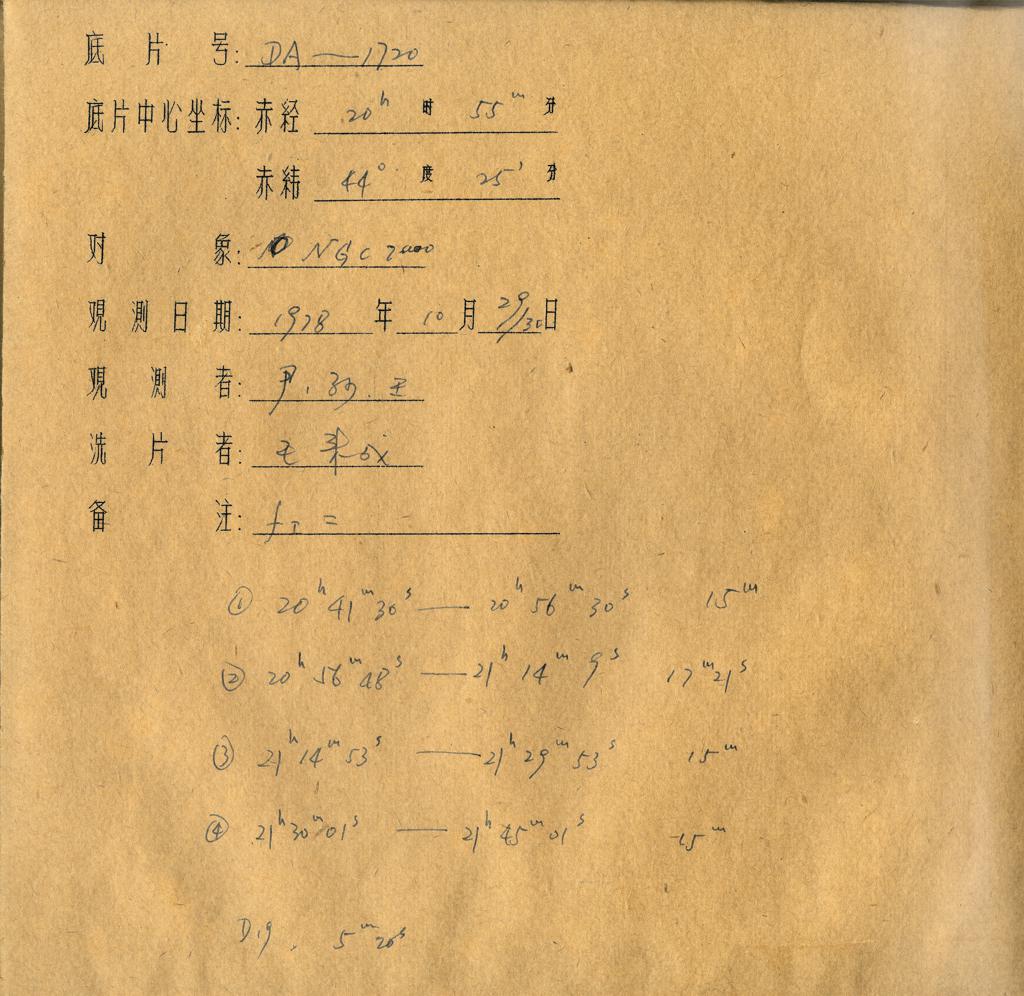 底片号: DA—1720
底片中心坐标: 赤经 20h 时 55m 分
赤纬 44° 度 25' 分
对象: NGC 7000
观测日期: 1978 年 10 月 29/30 日
观测者: 尹. 孙. 王
洗片者: 王
备注: fI =
① 20h 41m 30s — 20h 56m 30s 15m
② 20h 56m 48s — 21h 14m 9s 17m 21s
③ 21h 14m 53s — 21h 29m 53s 15m
④ 21h 30m 01s — 21h 45m 01s 15m
D19. 5m 20s